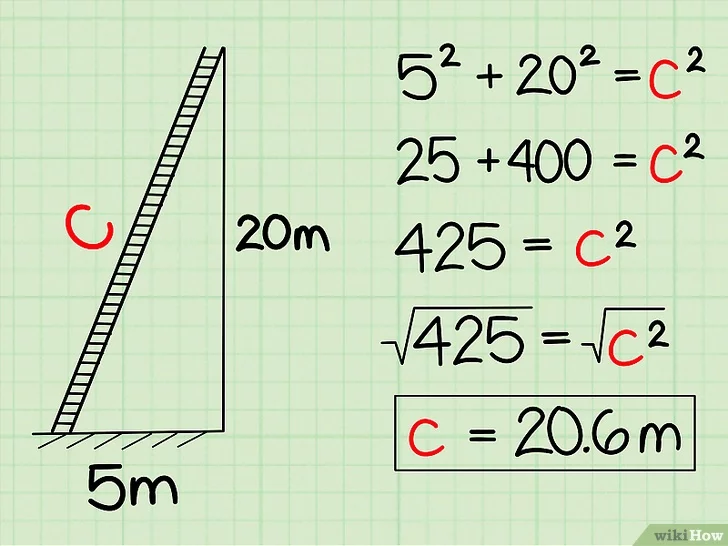 C
20m
5m
5² + 20² = C²
25 + 400 = C²
425 = C²
√425 = √C²
C = 20.6m
wikiHow